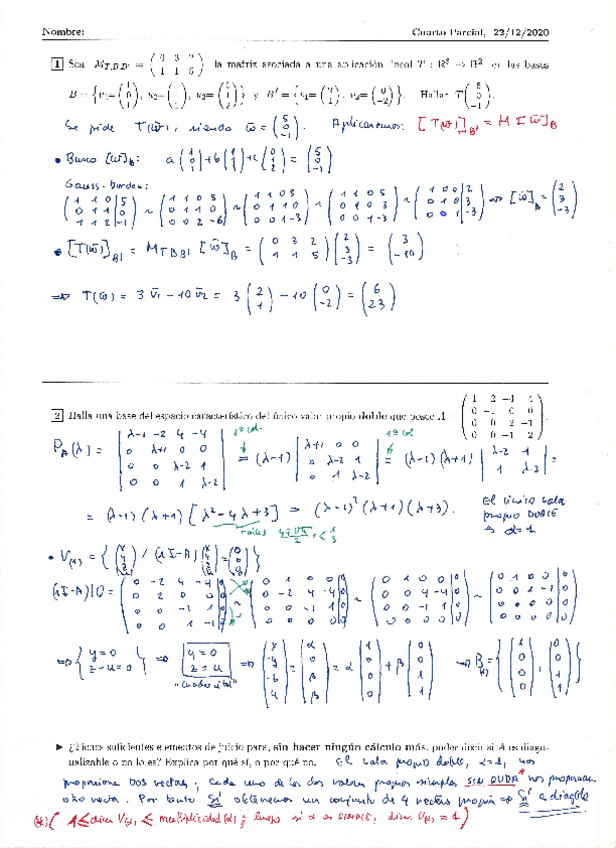 Nombre: Cuarto Parcial, 23/12/2020
1 Sea M_{T,B,B'} = (0 3 2 / 1 1 5) la matriz asociada a una aplicación lineal T : R³ → R² en las bases
B = {u₁= , u₂= , u₃= } y B' = {v₁=(2 / 1), v₂=(0 / −2)}. Hallar T(5 / 0 / −1).
Se pide T(w̄), siendo w̄ = (5 / 0 / −1). Aplicaremos: [T(w̄)]_{B'} = M [w̄]_B
• Busco [w̄]_B: a(1 / 0 / 1) + b(1 / 1 / 1) + c(0 / 1 / 2) = (5 / 0 / −1)
Gauss-Jordan:
(1 1 0|5 / 0 1 1|0 / 1 1 2|−1) ~ (1 1 0 5 / 0 1 1 0 / 0 0 2 −6) ~ (1 1 0 5 / 0 1 1 0 / 0 0 1 −3) ~ (1 1 0 5 / 0 1 0 3 / 0 0 1 −3) ~ (1 0 0|2 / 0 1 0|3 / 0 0 1|−3) ⇒ [w̄]_B = (2 / 3 / −3)
• [T(w̄)]_{B'} = M_{TBB'} [w̄]_B = (0 3 2 / 1 1 5)(2 / 3 / −3) = (3 / −10)
⇒ T(w̄) = 3 v̄₁ − 10 v̄₂ = 3(2 / 1) − 10(0 / −2) = (6 / 23)
2 Halla una base del espacio característico del único valor propio doble que posee A = (1 2 −4 4 / 0 −1 0 0 / 0 0 2 −1 / 0 0 −1 2).
P_A(λ) = |λ−1 −2 4 −4 / 0 λ+1 0 0 / 0 0 λ−2 1 / 0 0 1 λ−2| = (λ−1) |λ+1 0 0 / 0 λ−2 1 / 0 1 λ−2| = (λ−1)(λ+1) |λ−2 1 / 1 λ−2| =
= (λ−1)(λ+1)[λ²−4λ+3] = (λ−1)²(λ+1)(λ+3). El único valor propio DOBLE es α=1
raíces (4±√4)/2 = < 1 / 3
• V(1) = {(x / y / z / u) / (1I−A)(x / y / z / u) = (0 / 0 / 0 / 0)}
(1I−A)|0 = (0 −2 4 −4|0 / 0 2 0 0|0 / 0 0 −1 1|0 / 0 0 1 −1|0) ~ (0 1 0 0|0 / 0 −2 4 −4|0 / 0 0 −1 1|0 / 0 0 0 0|0) ~ (0 1 0 0|0 / 0 0 4 −4|0 / 0 0 −1 1|0 / 0 0 0 0|0) ~ (0 1 0 0|0 / 0 0 1 −1|0 / 0 0 0 0|0 / 0 0 0 0|0)
⇒ {y=0 / z−u=0} ⇒ y=0 / z=u ⇒ (x / y / z / u) = (α / 0 / β / β) = α(1 / 0 / 0 / 0) + β(0 / 0 / 1 / 1) ⇒ B(1) = {(1 / 0 / 0 / 0), (0 / 0 / 1 / 1)}
▶ ¿Tienes suficientes elementos de juicio para, sin hacer ningún cálculo más, poder decir si A es diago-
nalizable o no lo es? Explica por qué sí, o por qué no. El valor propio doble, α=1, nos
proporciona DOS vectores; cada uno de los dos valores propios simples SIN DUDA* nos proporcionan
otro vector. Por tanto Sí obtenemos un conjunto de 4 vectores propios ⇒ Sí es diagble
(*) (1 ≤ dim V(α) ≤ multiplicidad(α); luego si α es SIMPLE, dim V(α) = 1)